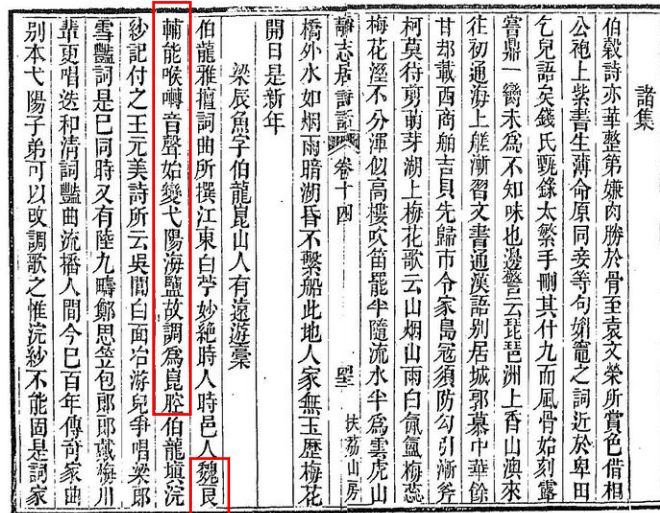 諸集
伯穀詩亦華整第嫌肉勝於骨至袁文榮所賞色借相
公袍上紫書生薄命原同妾等句婣竈之詞近於卑田
乞兒語矣錢氏甄錄太繁手刪其什九而風骨始刻露
嘗鼎一臠未為不知味也邊警云琵琶洲上香山澳來
往初通海上艖漸習文書通漢語別居城郭慕中華餘
甘却載西商舶吉貝先歸市令家島寇須防勾引漸斧
柯莫待剪萌芽湖上梅花歌云山烟山雨白氤氳梅蕊
梅花溼不分渾似高樓吹笛罷半隨流水半為雲虎山
靜志居詩話 卷十四 扶荔山房
橋外水如烟雨暗湖昏不繫船此地人家無玉歷梅花
開日是新年
梁辰魚字伯龍崑山人有遠遊稾
伯龍雅擅詞曲所撰江東白苧妙絕時人時邑人魏良
輔能喉囀音聲始變弋陽海鹽故調爲崑腔伯龍塡浣
紗記付之王元美詩所云吳閶白面冶游兒爭唱梁郎
雪豔詞是已同時又有陸九疇鄭思笠包郎郎戴梅川
輩更唱迭和清詞豔曲流播人間今已百年傳奇家曲
別本弋陽子弟可以改調歌之惟浣紗不能固是詞家